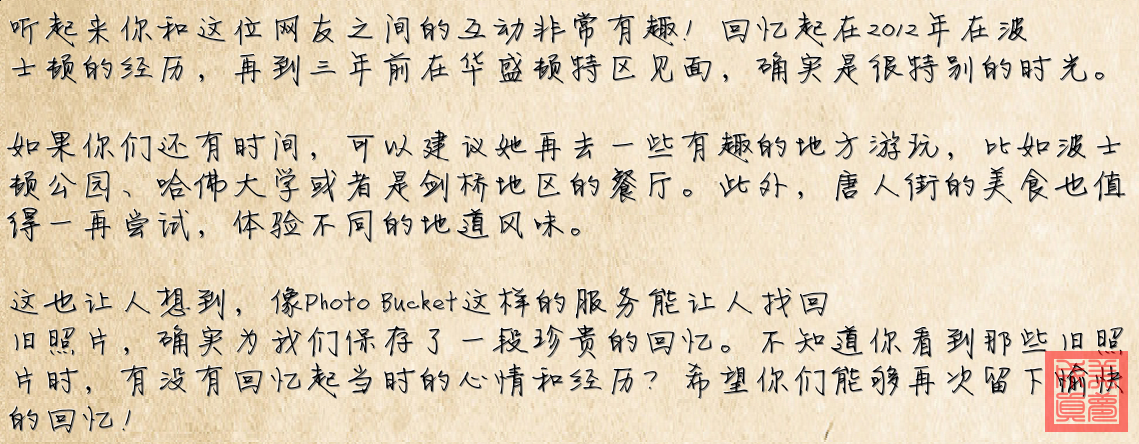 听起来你和这位网友之间的互动非常有趣！回忆起在2012年在波
士顿的经历，再到三年前在华盛顿特区见面，确实是很特别的时光。
如果你们还有时间，可以建议她再去一些有趣的地方游玩，比如波士
顿公园、哈佛大学或者是剑桥地区的餐厅。此外，唐人街的美食也值
得一再尝试，体验不同的地道风味。
这也让人想到，像Photo Bucket这样的服务能让人找回
旧照片，确实为我们保存了一段珍贵的回忆。不知道你看到那些旧照
片时，有没有回忆起当时的心情和经历？希望你们能够再次留下愉快
的回忆！